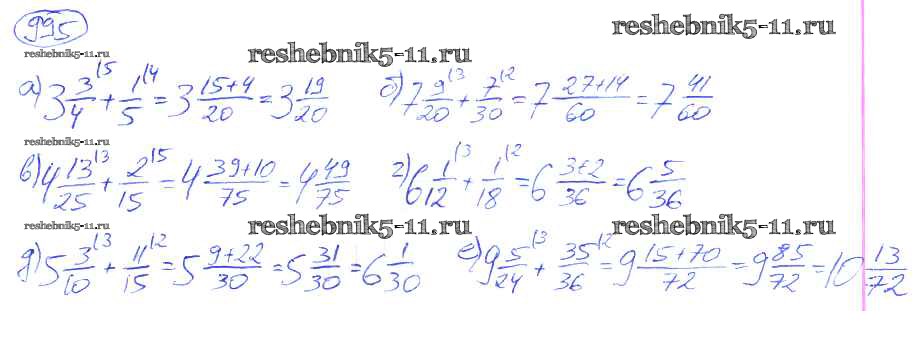 995
reshebnik5-11.ru
reshebnik5-11.ru reshebnik5-11.ru
а) 3 3/4 |5 + 1/5 |4 = 3 (15+4)/20 = 3 19/20 б) 7 9/20 |3 + 7/30 |2 = 7 (27+14)/60 = 7 41/60
reshebnik5-11.ru
в) 4 13/25 |3 + 2/15 |5 = 4 (39+10)/75 = 4 49/75 г) 6 1/12 |3 + 1/18 |2 = 6 (3+2)/36 = 6 5/36
reshebnik5-11.ru reshebnik5-11.ru reshebnik5-11.ru
д) 5 3/10 |3 + 11/15 |2 = 5 (9+22)/30 = 5 31/30 = 6 1/30 е) 9 5/24 |3 + 35/36 |2 = 9 (15+70)/72 = 9 85/72 = 10 13/72